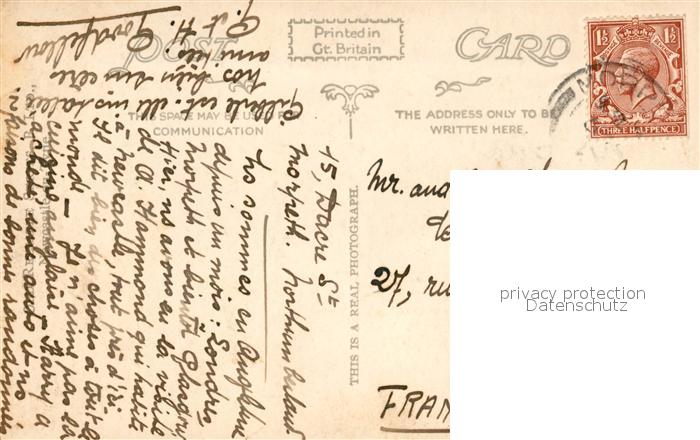 POST CARD
Printed in
Gt. Britain
THIS SPACE MAY BE USED FOR
COMMUNICATION
THE ADDRESS ONLY TO BE
WRITTEN HERE.
THIS IS A REAL PHOTOGRAPH.
1½ 1½
THREE HALFPENCE
15, Dacre St
Morpeth. Northumberland
Ns sommes en Angleterre
depuis un mois: Londres
Morpeth et bientôt
Hier, ns avons eu la visite
de A. Hammond qui habite
à Newcastle, tout près d'ici
Il dit bien des choses à tout le
monde — Je n'aime pas la
cuisine anglaise Harry a
acheté une auto et ns
faisons de bonnes randonnées
Gilberte est
nos bien sincères
amitiés
G. et H. Goodfellow
Mr. and
27, ru
FRAN
privacy protection
Datenschutz